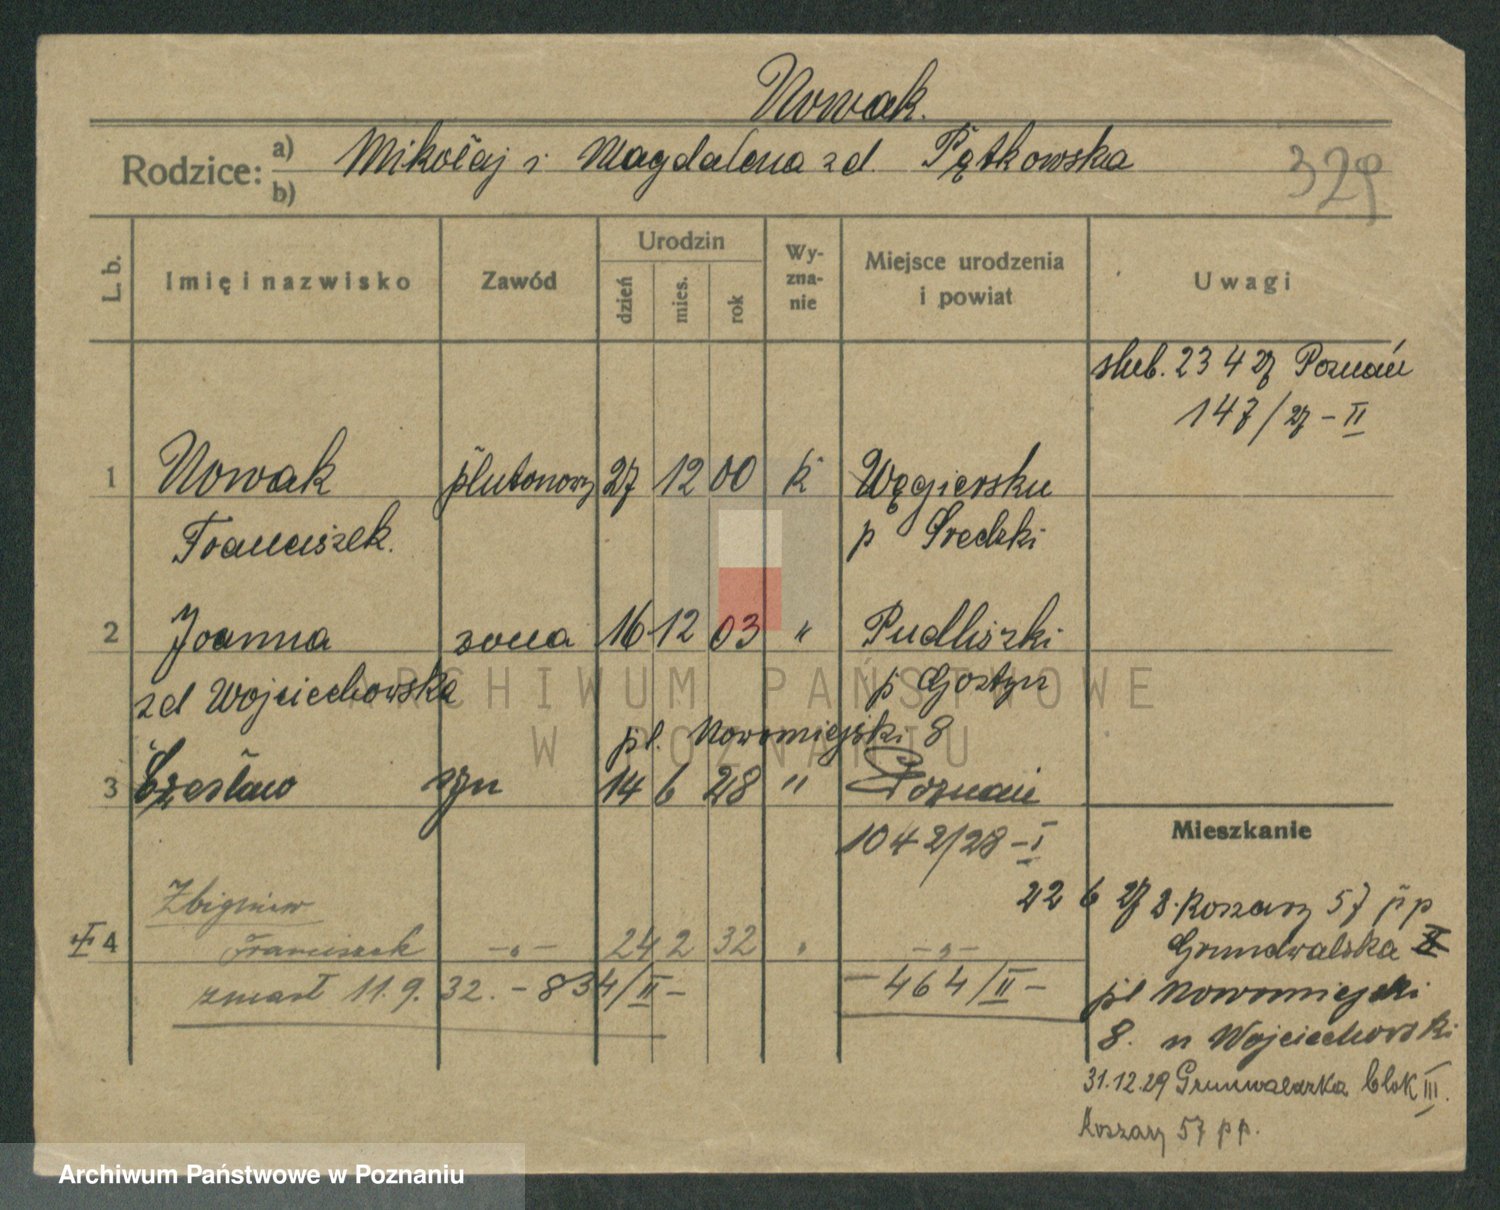 Nowak.
Rodzice: a) b) Mikołaj i Magdalena zd. Pątkowska
329
L. b. Imię i nazwisko Zawód Urodzin dzień mies. rok Wy-zna-nie Miejsce urodzenia i powiat Uwagi
ślub. 23 4 27 Poznań
147/27 – II
1 Nowak plutonowy 27 12 00 k Węgiersku
Franciszek. p Średzki
2 Joanna żona 16 12 03 " Pudliszki
zd Wojciechowska p Gostyn
pl. Nowomiejski 8
3 Czesław syn 14 6 28 " Poznań
1042/28 – I
Mieszkanie
22 6 27 Koszary 57 p p
Zbigniew
4 Franciszek –„– 24 2 32 " –„–
Grundwalska
zmarł 11.9.32. – 834/II – – 464/II –
pl Nowomiejski
8. u Wojciechowski
31.12.29 Grunwaldzka blok III.
Koszary 57 p p.
ARCHIWUM PAŃSTWOWE
W POZNANIU
Archiwum Państwowe w Poznaniu